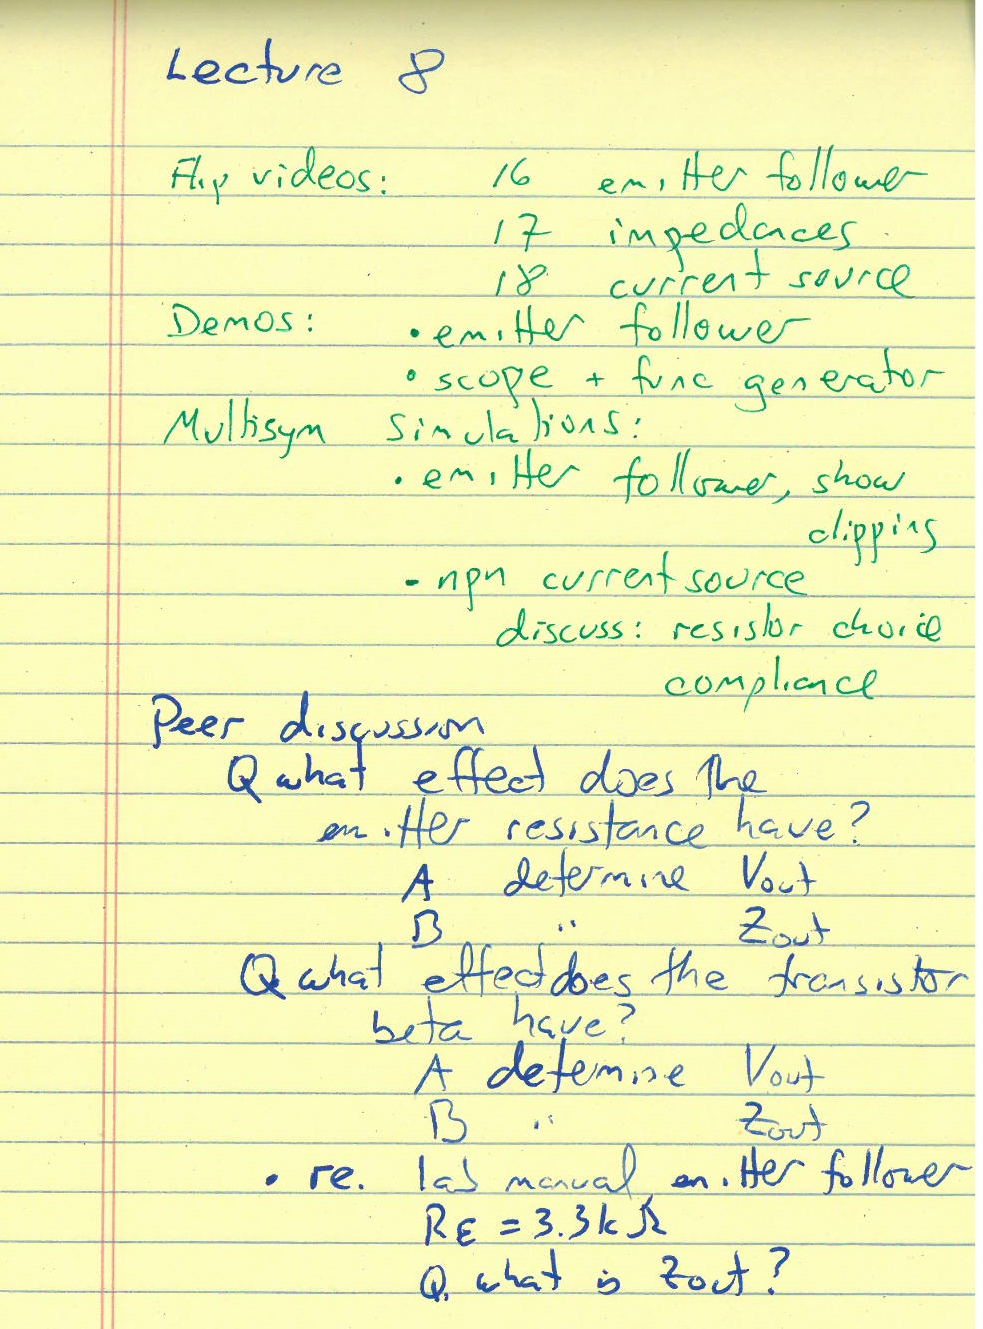 Lecture 8
Flip videos: 16 emitter follower
17 impedances
18 current source
Demos: • emitter follower
• scope + func generator
Multisym simulations:
• emitter follower, show
clipping
- npn current source
discuss: resistor choice
compliance
Peer discussion
Q what effect does the
emitter resistance have?
A determine Vout
B " Zout
Q what effect does the transistor
beta have?
A determine Vout
B " Zout
• re. lab manual, emitter follower
RE = 3.3k Ω
Q. what is Zout?